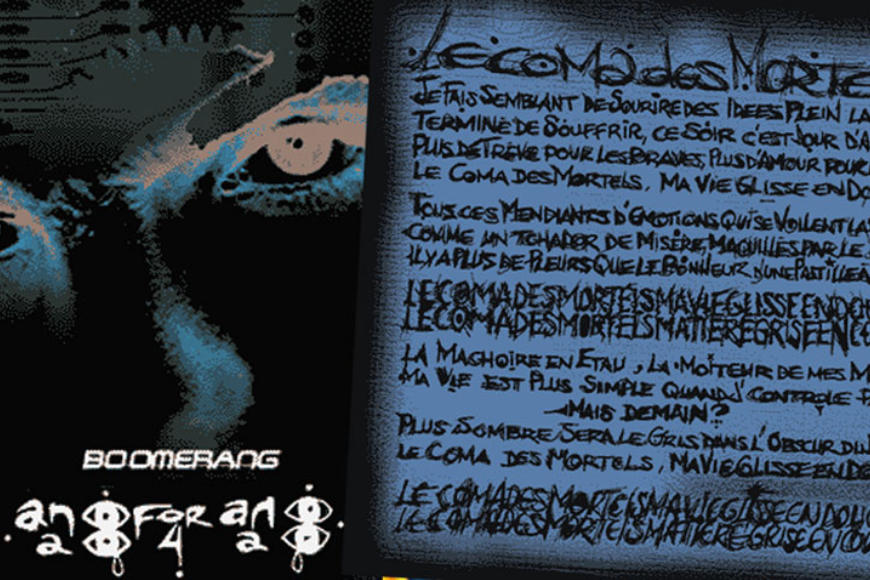 BOOMERANG
an FOR an
2 4 2
Le coma des Morte
Je fais semblant de sourire des idees plein la
Termine de souffrir, ce soir c'est jour d'a
Plus de treve pour les braves, plus d'amour pour
Le coma des mortels, ma vie glisse en do
Tous ces mendiants d'emotions qui se voilent la
Comme un tchador de misere, maquilles par le
Il y a plus de pleurs que le bonheur d'une pastille a
LE COMA DES MORTELS MA VIE GLISSE EN DO
LE COMA DES MORTELS MATIERE GRISE EN CO
La machoire en etau, la moiteur de mes m
Ma vie est plus simple quand j'controle p
Mais demain?
Plus sombre sera le gris dans l'obscur du
Le coma des mortels, ma vie glisse en de
LE COMA DES MORTELS MA VIE GLISSE EN DOU
LE COMA DES MORTELS MATIERE GRISE EN COU